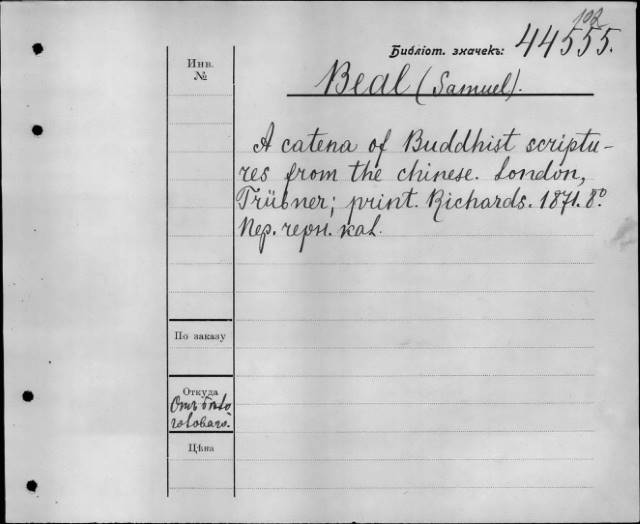 102
Библіот. значекъ: 44555.
Инв.
№
Beal (Samuel).
A catena of Buddhist scriptu-
res from the chinese. London,
Trübner; print. Richards. 1871. 8º.
Пер. черн. кал.
По заказу
Откуда
Отъ
Цѣна